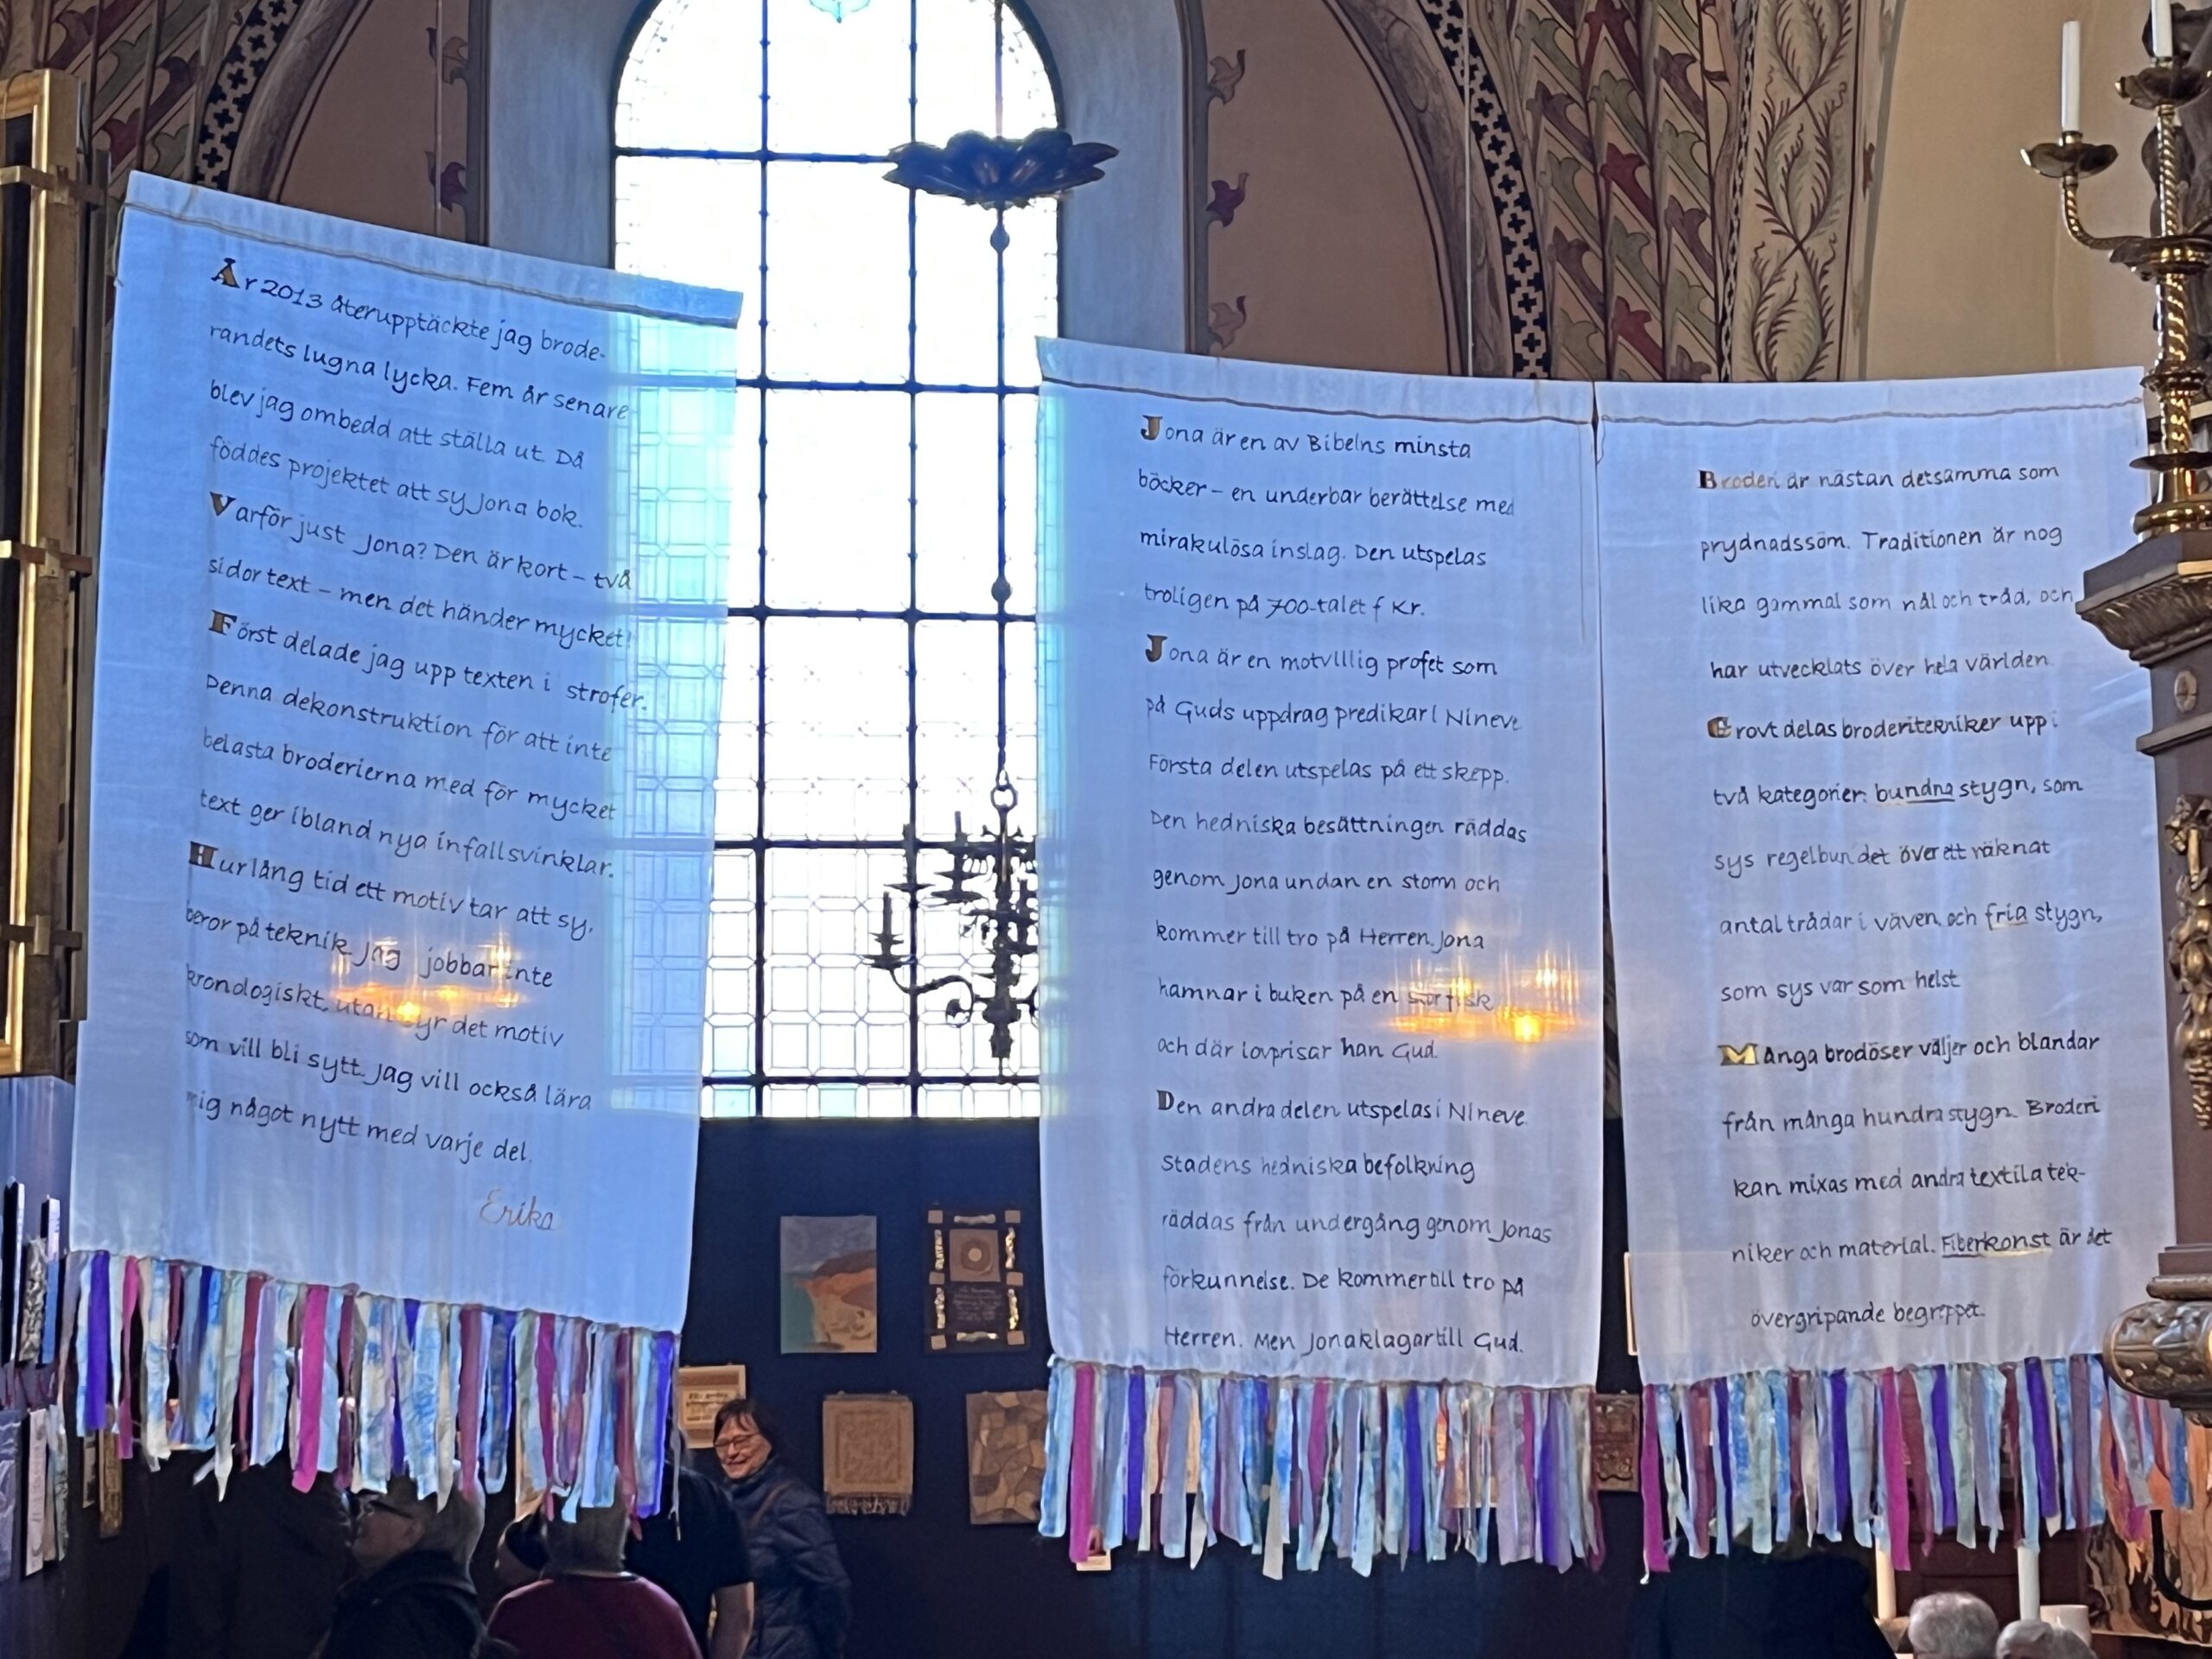 År 2013 återupptäckte jag brode-
randets lugna lycka. Fem år senare
blev jag ombedd att ställa ut. Då
föddes projektet att sy Jona bok.
Varför just Jona? Den är kort – två
sidor text – men det händer mycket!
Först delade jag upp texten i strofer.
Denna dekonstruktion för att inte
belasta broderierna med för mycket
text ger ibland nya infallsvinklar.
Hur lång tid ett motiv tar att sy,
beror på teknik. Jag jobbar inte
kronologiskt, utan syr det motiv
som vill bli sytt. Jag vill också lära
mig något nytt med varje del.
Erika
Jona är en av Bibelns minsta
böcker – en underbar berättelse med
mirakulösa inslag. Den utspelas
troligen på 700-talet f Kr.
Jona är en motvillig profet som
på Guds uppdrag predikar i Nineve
Första delen utspelas på ett skepp.
Den hedniska besättningen räddas
genom Jona undan en storm och
kommer till tro på Herren. Jona
hamnar i buken på en stor fisk
och där lovprisar han Gud.
Den andra delen utspelas i Nineve
Stadens hedniska befolkning
räddas från undergång genom Jonas
förkunnelse. De kommer till tro på
Herren. Men Jona klagar till Gud.
Broderi är nästan detsamma som
prydnadssöm. Traditionen är nog
lika gammal som nål och tråd, och
har utvecklats över hela världen.
Grovt delas broderitekniker upp i
två kategorier: bundna stygn, som
sys regelbundet över ett räknat
antal trådar i väven, och fria stygn,
som sys var som helst
Många brodöser väljer och blandar
från många hundra stygn. Broderi
kan mixas med andra textila tek-
niker och material. Fiberkonst är det
övergripande begreppet.